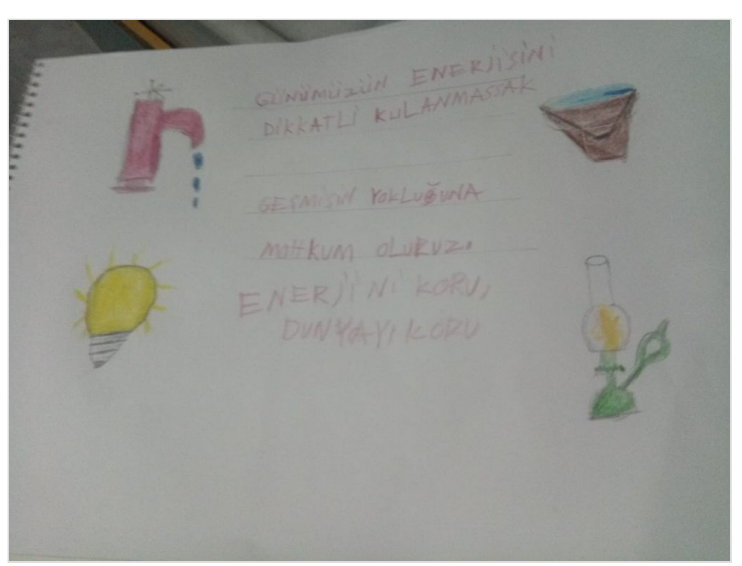 GÜNÜMÜZÜN ENERJİSİNİ
DİKKATLİ KULANMASSAK
GEÇMİŞİN YOKLUĞUNA
MAHKUM OLURUZ.
ENERJİNİ KORU,
DUNYAYI KORU